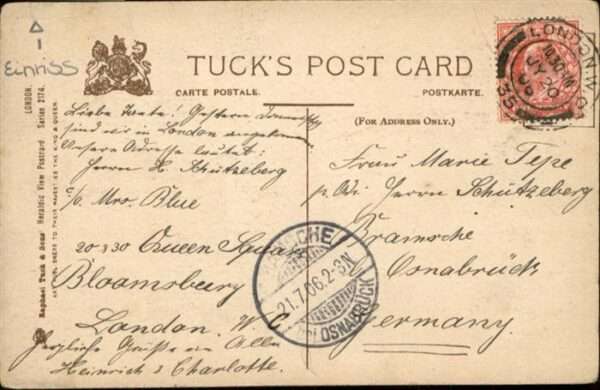 Einriss
TUCK'S POST CARD
CARTE POSTALE.
POSTKARTE.
(FOR ADDRESS ONLY.)
Liebe Tante! Gestern
sind wir in London
Unsere Adresse lautet:
Herrn H. Schützeberg
c/o Mrs. Blue
20 & 30 Queen Square
Bloomsbury
London. W. C
Herzliche Grüße an Alle
Heinrich & Charlotte.
Frau Marie Tepe
p. Adr. Herrn Schützeberg
Bramsche
Osnabrück
Germany.
LONDON.W.C
10.30 AM
JY 20
06
35
BRAMSCHE
21.7.06.2-3N
OSNABRÜCK
Raphael Tuck & Sons' Heraldic View Postcard Series 2174. LONDON.
ART PUBLISHERS TO THEIR MAJESTIES THE KING & QUEEN.